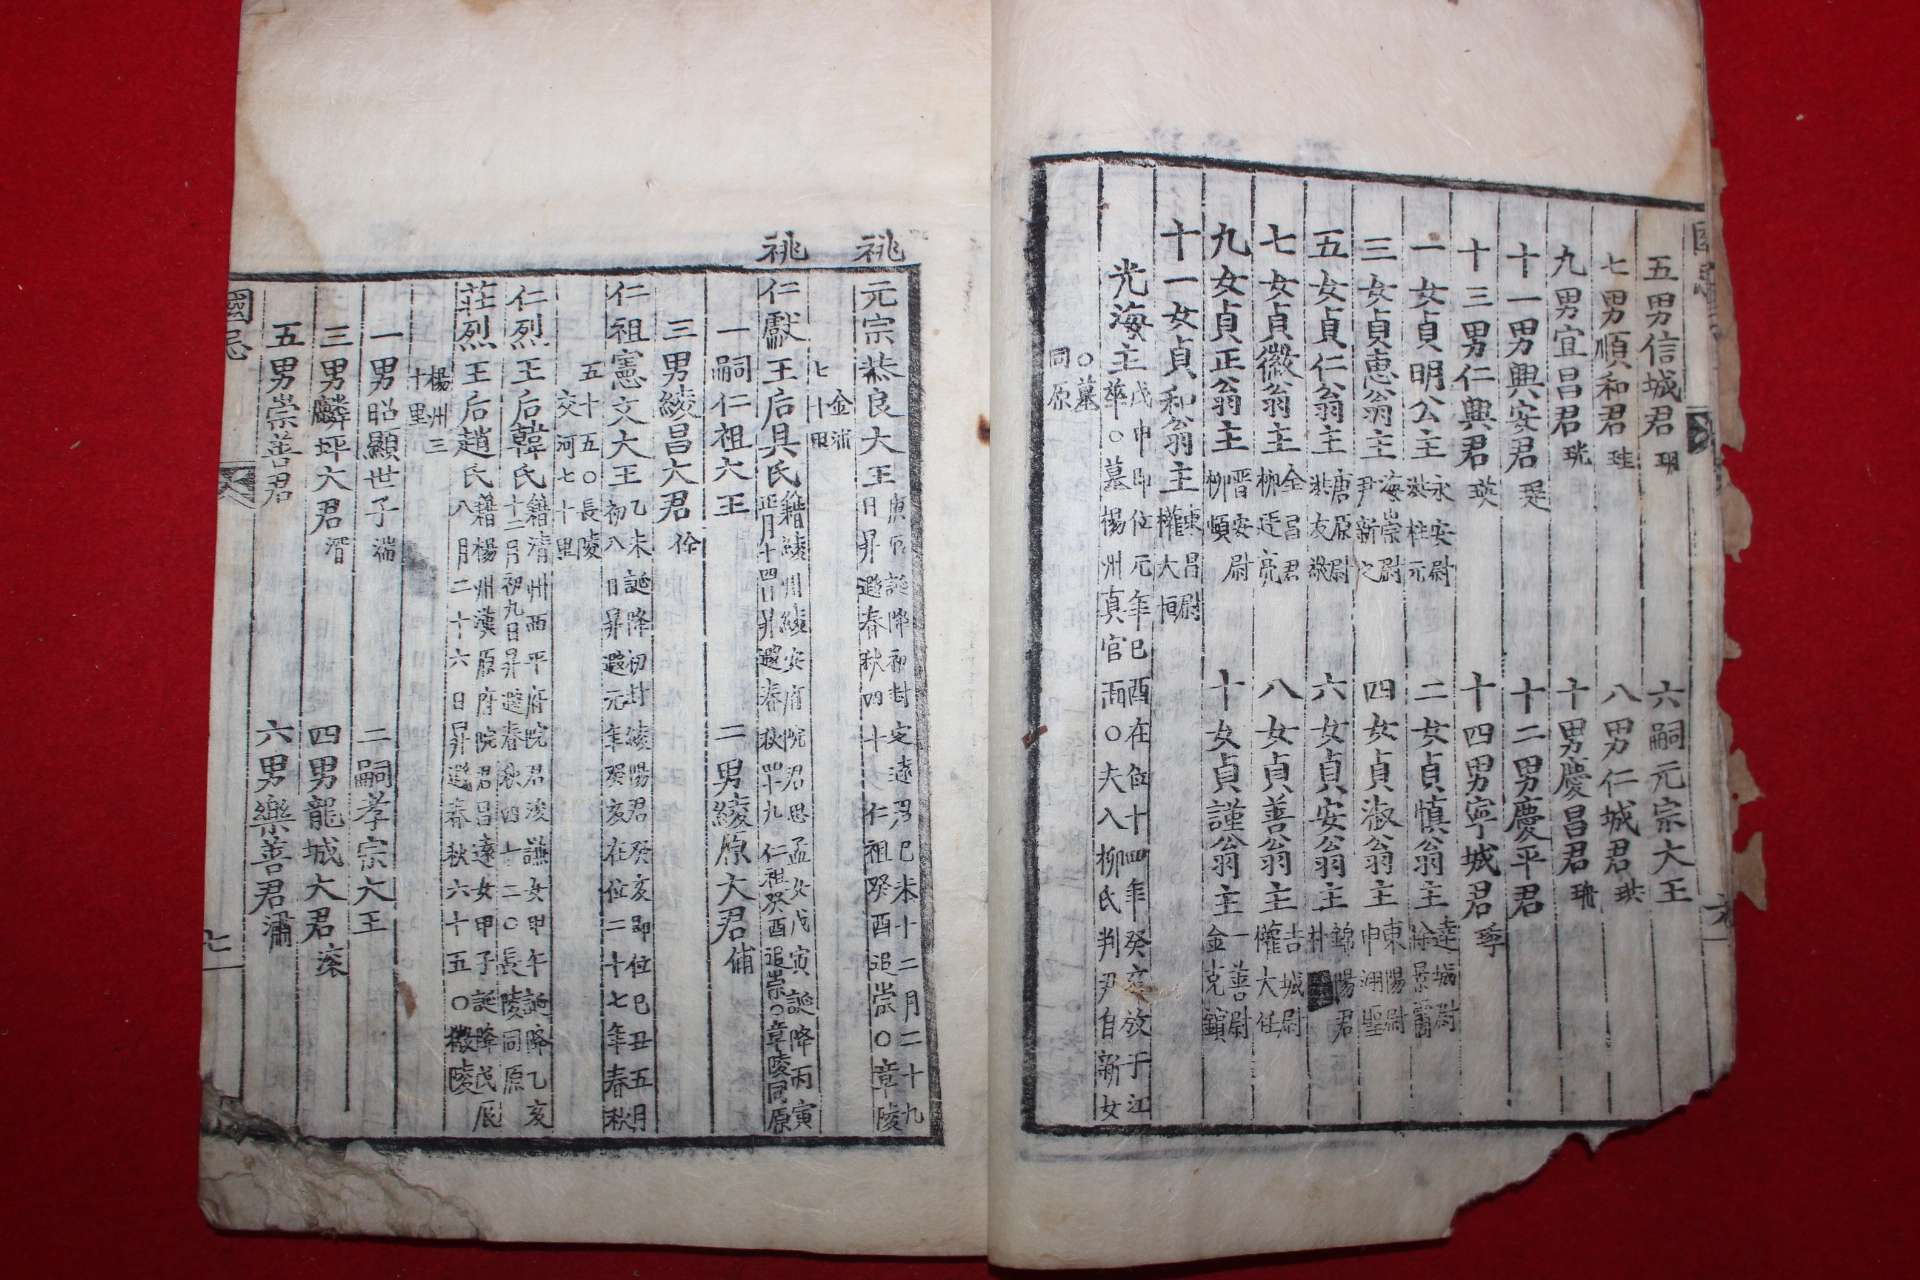 五男信城君珝
六嗣元宗大王
七男順和君𤣰
八男仁城君珙
九男宜昌君珖
十男慶昌君珘
十一男興安君瑅
十二男慶平君
十三男仁興君瑛
十四男寧城君㻑
一女貞明公主 永安尉
洪柱元
二女貞愼翁主 達城尉
徐景霌
三女貞惠翁主 海崇尉
尹新之
四女貞淑翁主 東陽尉
申翊聖
五女貞仁翁主 唐原尉
洪友敬
六女貞安翁主 錦陽君
朴
七女貞徽翁主 全昌君
柳廷亮
八女貞善翁主 吉城尉
權大任
九女貞正翁主 晋安尉
柳頔
十女貞謹翁主 一善尉
金克鑌
十一女貞和翁主 東昌尉
權大恒
光海主 戊申即位元年己酉在位十四年癸亥放于江
華○墓楊州真官面○夫人柳氏判尹自新女
○墓
同原
國忌
六
祧
元宗恭良大王 庚辰誕降初封定遠君己未十二月二十九
日昇遐春秋四十仁祖癸酉追崇○章陵
金浦
七十里
祧
仁獻王后具氏 籍綾州綾安府院君思孟女戊寅誕降丙寅
正月十四日昇遐春秋四十九仁祖癸酉追崇○章陵同原
一嗣仁祖大王
二男綾原大君俌
三男綾昌大君佺
仁祖憲文大王 乙未誕降初封綾陽君癸亥即位己丑五月
初八日昇遐元年癸亥在位二十七年春秋
五十五○長陵
交河七十里
仁烈王后韓氏 籍淸州西平府院君浚謙女甲午誕降乙亥
十二月初九日昇遐春秋四十二○長陵同原
莊烈王后趙氏 籍楊州漢原府院君昌遠女甲子誕降戊辰
八月二十六日昇遐春秋六十五○徽陵
楊州三
十里
一男昭顯世子㳷
二嗣孝宗大王
三男麟坪大君㴭
四男龍城大君滾
五男崇善君
六男樂善君潚
國忌
七